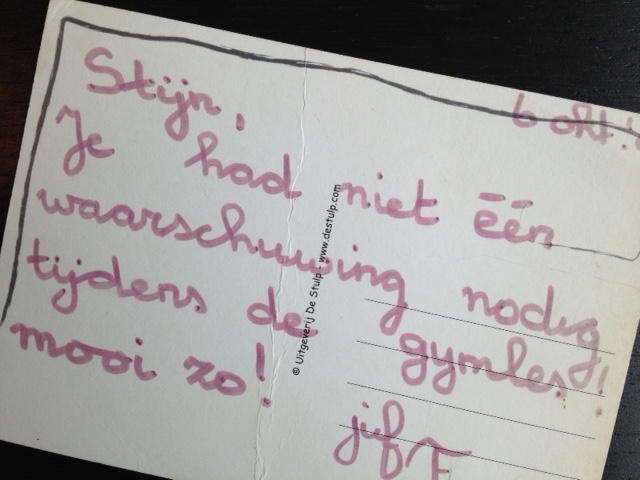 6 okt.
Stijn,
Je had niet één
waarschuwing nodig
tijdens de gymles!
mooi zo!
juf F
© Uitgeverij De Stulp - www.destulp.com